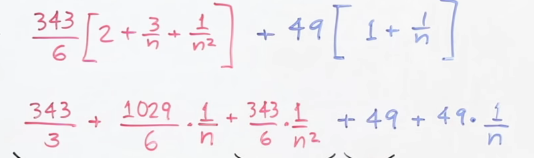 343/6 [2 + 3/n + 1/n²] + 49 [1 + 1/n]
343/3 + 1029/6 · 1/n + 343/6 · 1/n² + 49 + 49 · 1/n